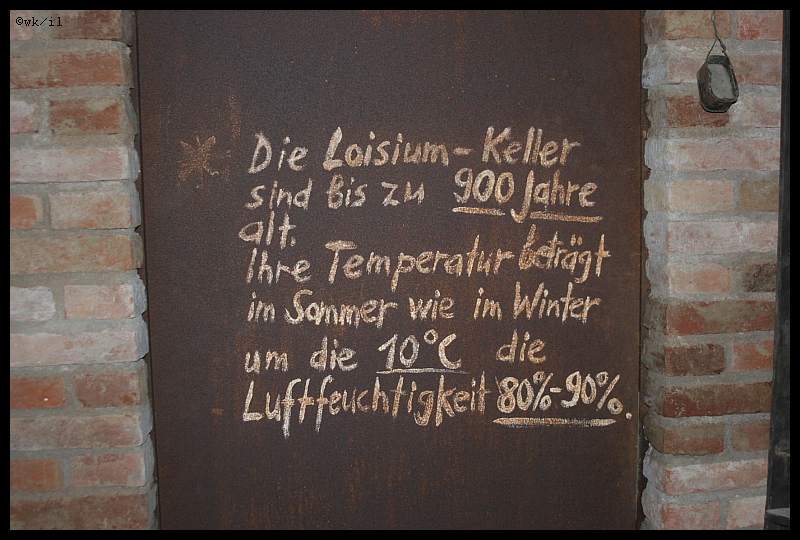 ©wk/il
* Die Loisium-Keller
sind bis zu 900 Jahre
alt.
Ihre Temperatur beträgt
im Sommer wie im Winter
um die 10°C die
Luftfeuchtigkeit 80%-90%.